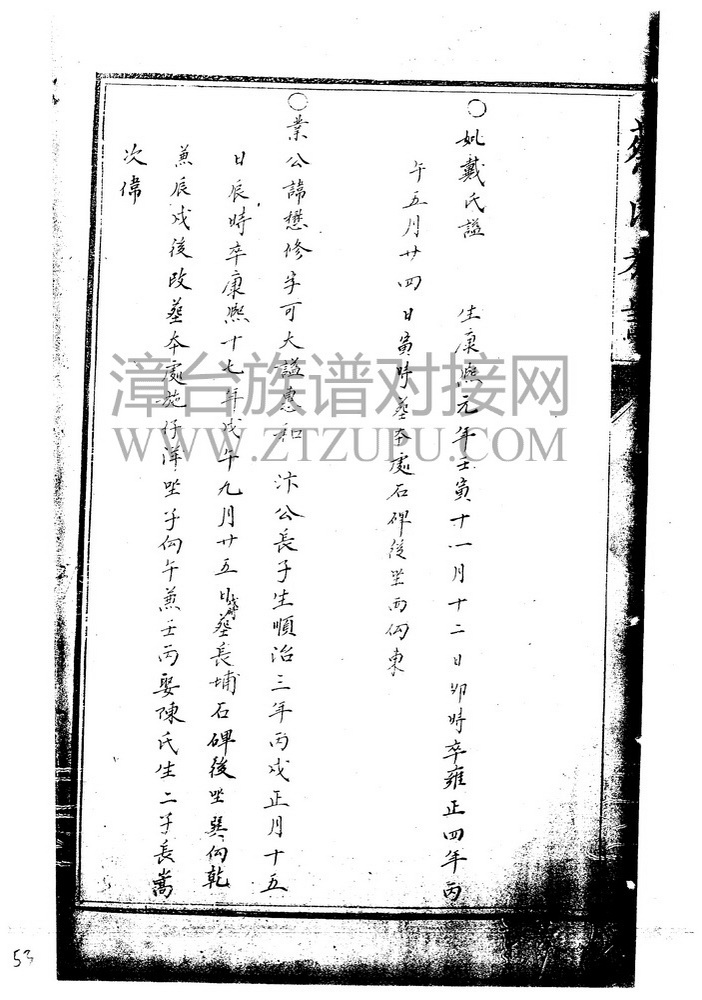 ○妣戴氏謚　生康熙元年壬寅十一月十二日卯時卒雍正四年丙
午五月廿四日寅時塟本處石碑後坐西向東
○業公諱懋修字可大謚惠和　汴公長子生順治三年丙戌正月十五
日辰時卒康熙十七年戊午九月廿五日時塟長埔石碑後坐巽向乾
兼辰戌後改塟本處施仔洋坐子向午兼壬丙娶陳氏生二子長嵩
次偉
漳台族谱对接网
WWW.ZTZUPU.COM
53